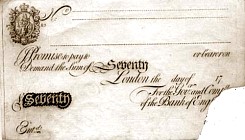 Promise to pay to or bearer on
Demand the Sum of Seventy
London the day of 17
For the Govr. and Compa.
Seventy of the Bank of Eng
Entd.